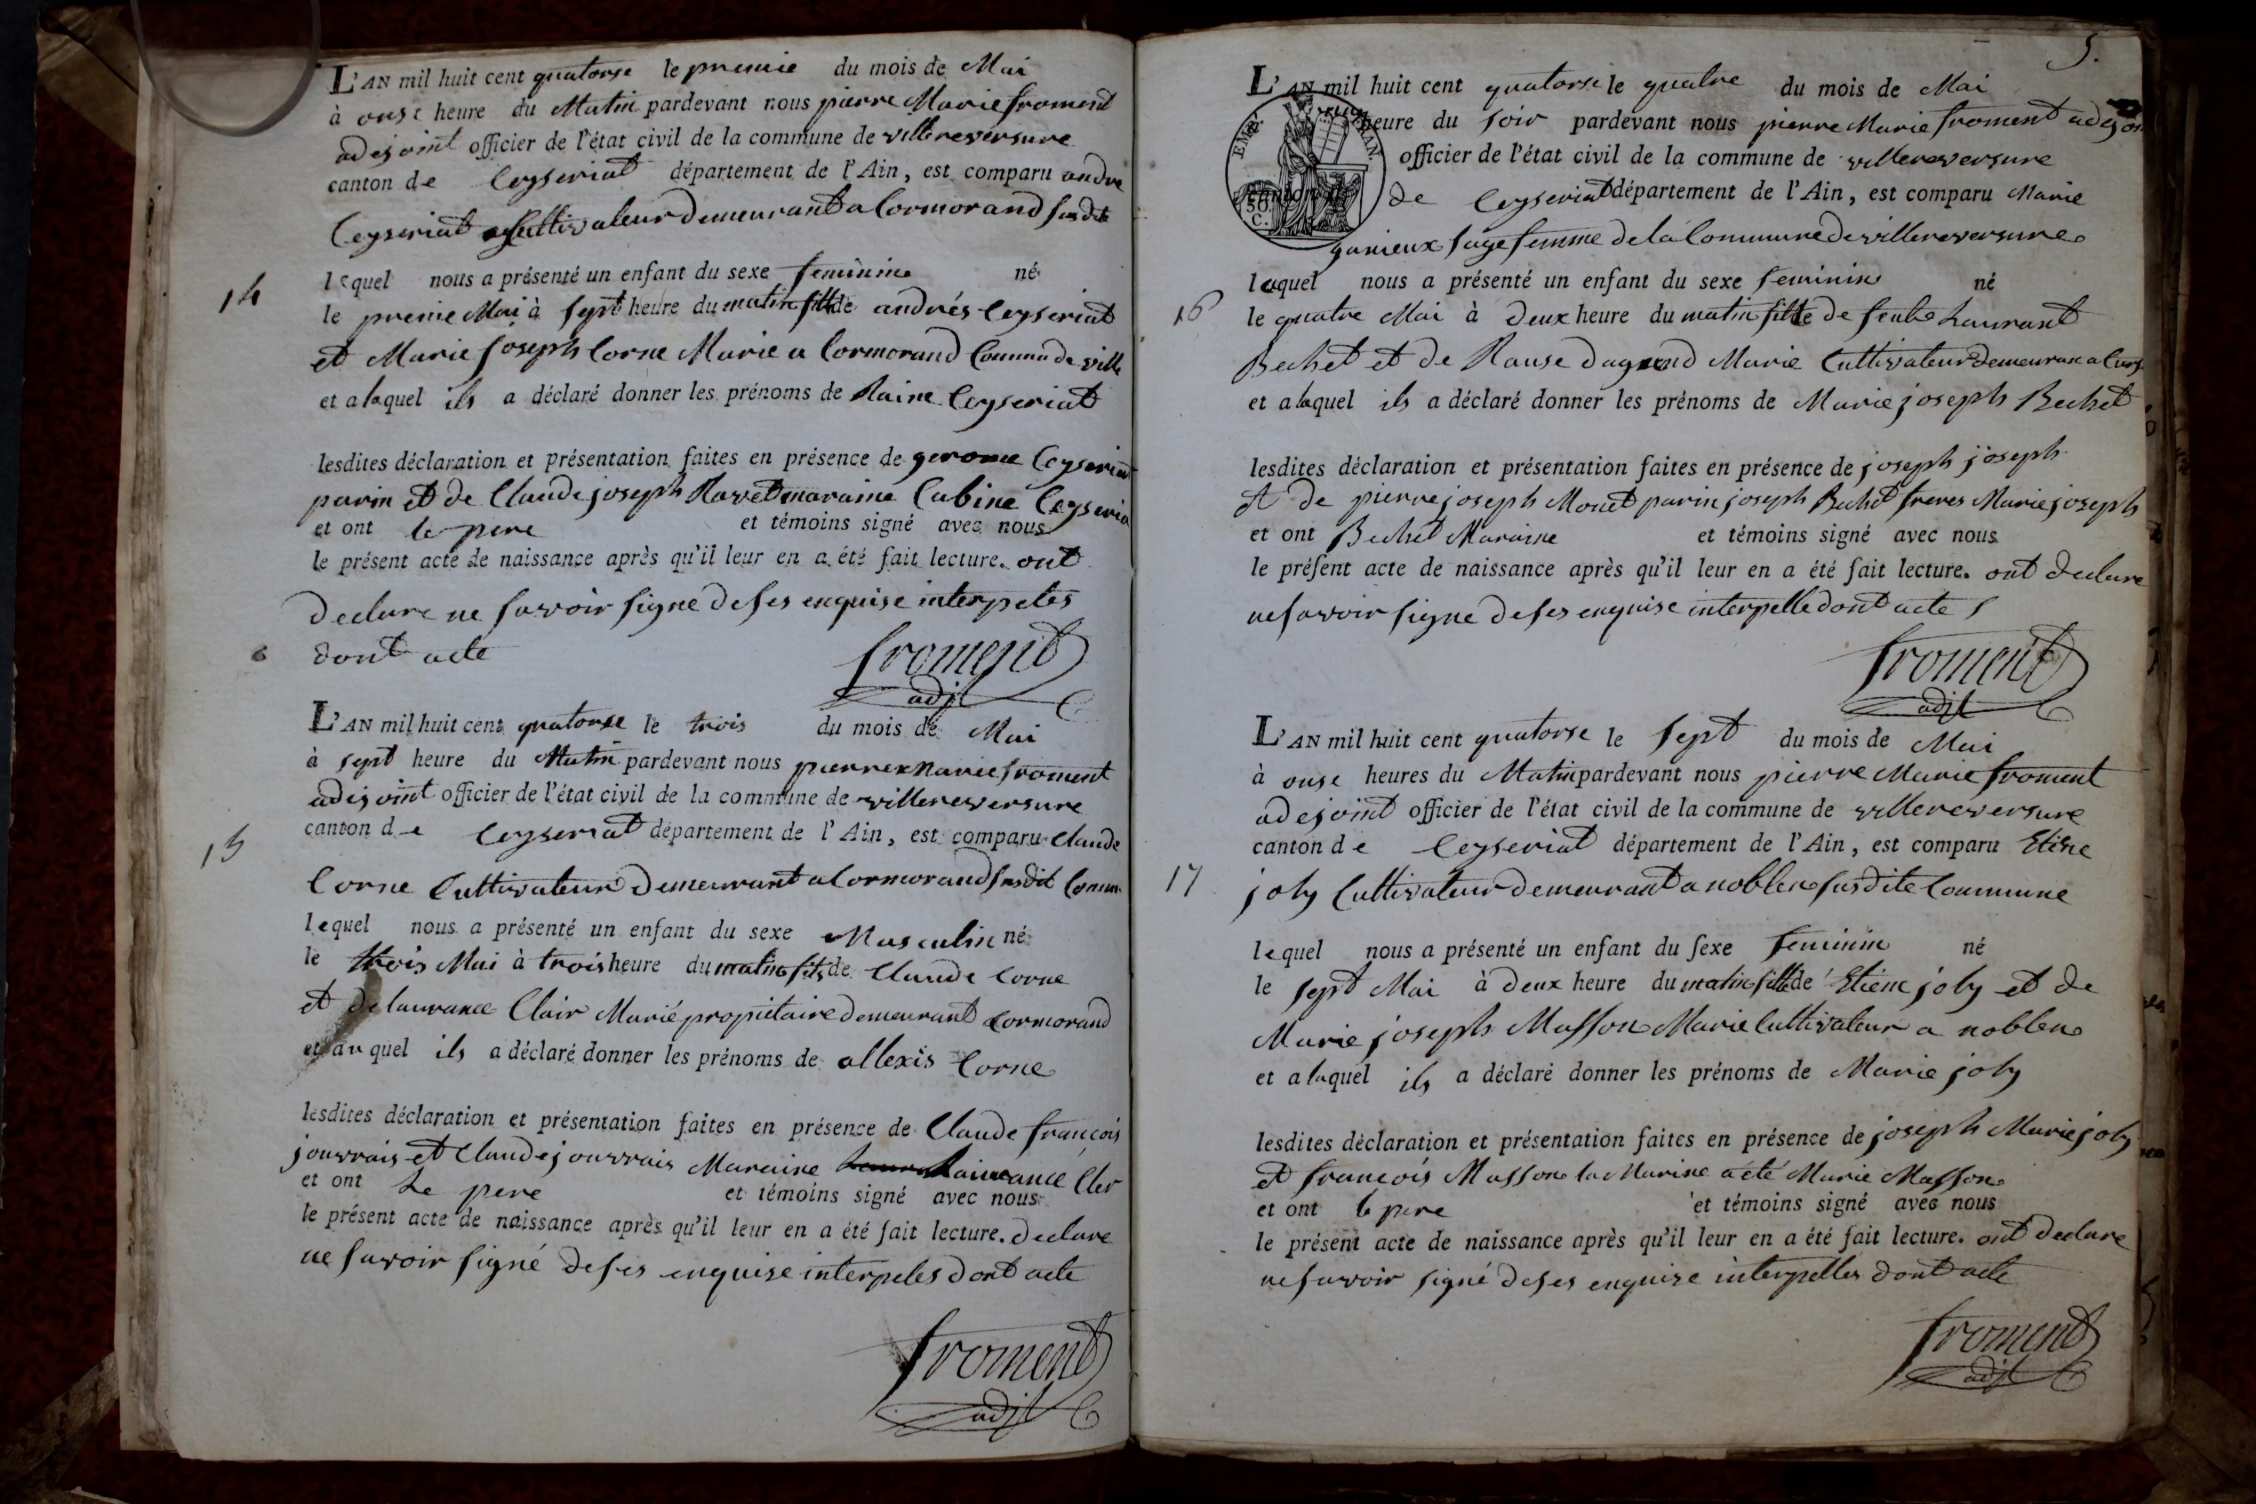 L'AN mil huit cent quatorse le premie du mois de Mai
à onse heure du Matin pardevant nous pierre Marie froment
adejoint officier de l'état civil de la commune de villereversure
canton de Ceyseriat département de l'Ain, est comparu andre
Ceyseriat Cultivateur Demeurant a Cormorand susdite
14
lequel nous a présenté un enfant du sexe feminine né
le premie Mai à sept heure du matin fille de andrés Ceyseriat
et Marie joseph Corne Marie a Cormorand Commu de ville
et a laquel ils a déclaré donner les prénoms de Raine Ceyseriat
lesdites déclaration et présentation faites en présence de gerome Ceyseriat
parin et de Claude joseph Ravet maraine Cabine Ceyseria
et ont le pere et témoins signé avec nous
le présent acte de naissance après qu'il leur en a été fait lecture. ont
declare ne savoir signe de ses enquise interpetes
dont acte
froment
adjt
L'AN mil huit cent quatorse le trois du mois de Mai
à sept heure du Matin pardevant nous pierre Marie froment
adejoint officier de l'état civil de la commune de villereversure
canton de Ceyseriat département de l'Ain, est comparu Claude
15
Corne Cultivateur Demeurant a Cormorand susdit Commu
lequel nous a présenté un enfant du sexe Masculin né
le trois Mai à trois heure du matin fils de Claude Corne
et de laurance Clair Marié propietaire demeurant Cormorand
et au quel ils a déclaré donner les prénoms de allexis Corne
lesdites déclaration et présentation faites en présence de Claude françois
jouvrais et Claude jouvrais Maraine Lairance Cler
et ont Le pere et témoins signé avec nous
le présent acte de naissance après qu'il leur en a été fait lecture. declare
ne savoir signé de ses enquise interpeles dont acte
froment
adjt
5.
L'AN mil huit cent quatorse le quatre du mois de Mai
heure du soir pardevant nous pierre Marie froment adejoin
officier de l'état civil de la commune de villereversure
canton de Ceyseriat département de l'Ain, est comparu Marie
ganieux sage femme de la Commune de villereversure
laquel nous a présenté un enfant du sexe feminin né
16
le quatre Mai à Deux heure du matin fille de Laurant
Bechet et de Rause Marie Cultivateur demeurant a
et a laquel ils a déclaré donner les prénoms de Marie joseph Bechet
lesdites déclaration et présentation faites en présence de joseph joseph
et de pierre joseph Monet parin joseph Bechet freres Marie joseph
et ont Bechet Maraine et témoins signé avec nous
le présent acte de naissance après qu'il leur en a été fait lecture. ont declare
ne savoir signe de ses enquise interpelle dont acte
froment
adjt
L'AN mil huit cent quatorse le sept du mois de Mai
à onse heures du Matin pardevant nous pierre Marie froment
adejoint officier de l'état civil de la commune de villereversure
canton de Ceyseriat département de l'Ain, est comparu Etiene
17
joly Cultivateur demeurant a noblens susdite Commune
lequel nous a présenté un enfant du sexe feminin né
le sept Mai à Deux heure du matin fille de Etiene joly et de
Marie joseph Masson Marie Cultivateur a noblens
et a laquel ils a déclaré donner les prénoms de Marie joly
lesdites déclaration et présentation faites en présence de joseph Marie joly
et françois Masson la Marine a été Marie Masson
et ont le pere et témoins signé avec nous
le présent acte de naissance après qu'il leur en a été fait lecture. ont declare
ne savoir signé de ses enquise interpelles dont acte
froment
adjt